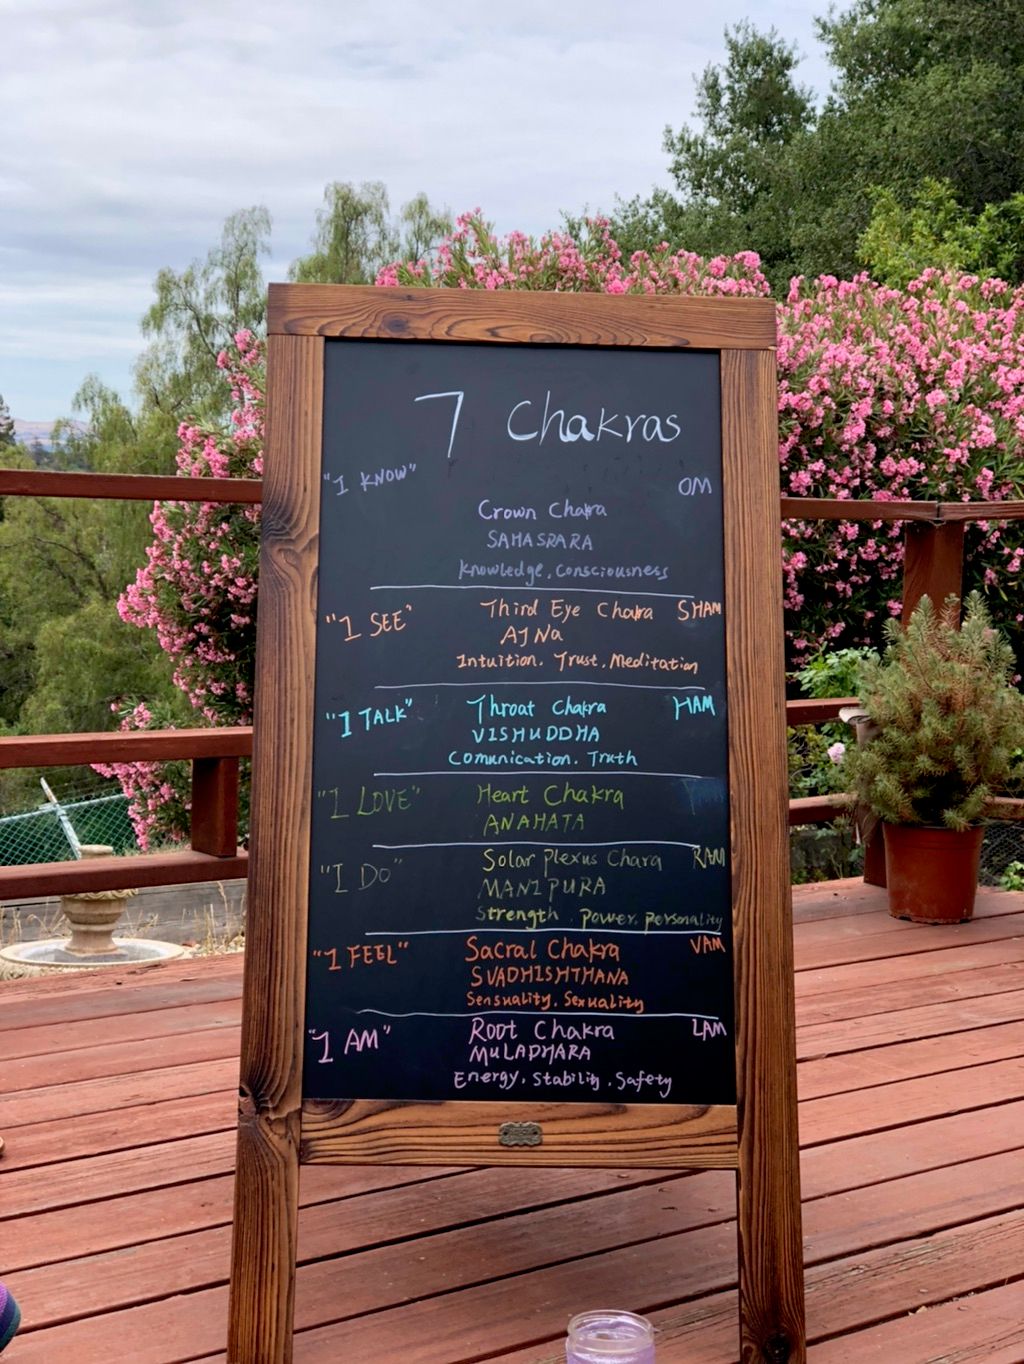 7 Chakras
"I KNOW" OM
Crown Chakra
SAHASRARA
Knowledge, Consciousness
"I SEE" Third Eye Chakra SHAM
AJNa
Intuition. Trust. Meditation
"I TALK" Throat Chakra HAM
VISHUDDHA
Comunication. Truth
"I LOVE" Heart Chakra
ANAHATA
"I DO" Solar plexus Chara RAM
MANIPURA
Strength. Power. personality
"I FEEL" Sacral Chakra VAM
SVADHISHTHANA
Sensuality. Sexuality
"I AM" Root Chakra LAM
MULADHARA
Energy. Stability. Safety